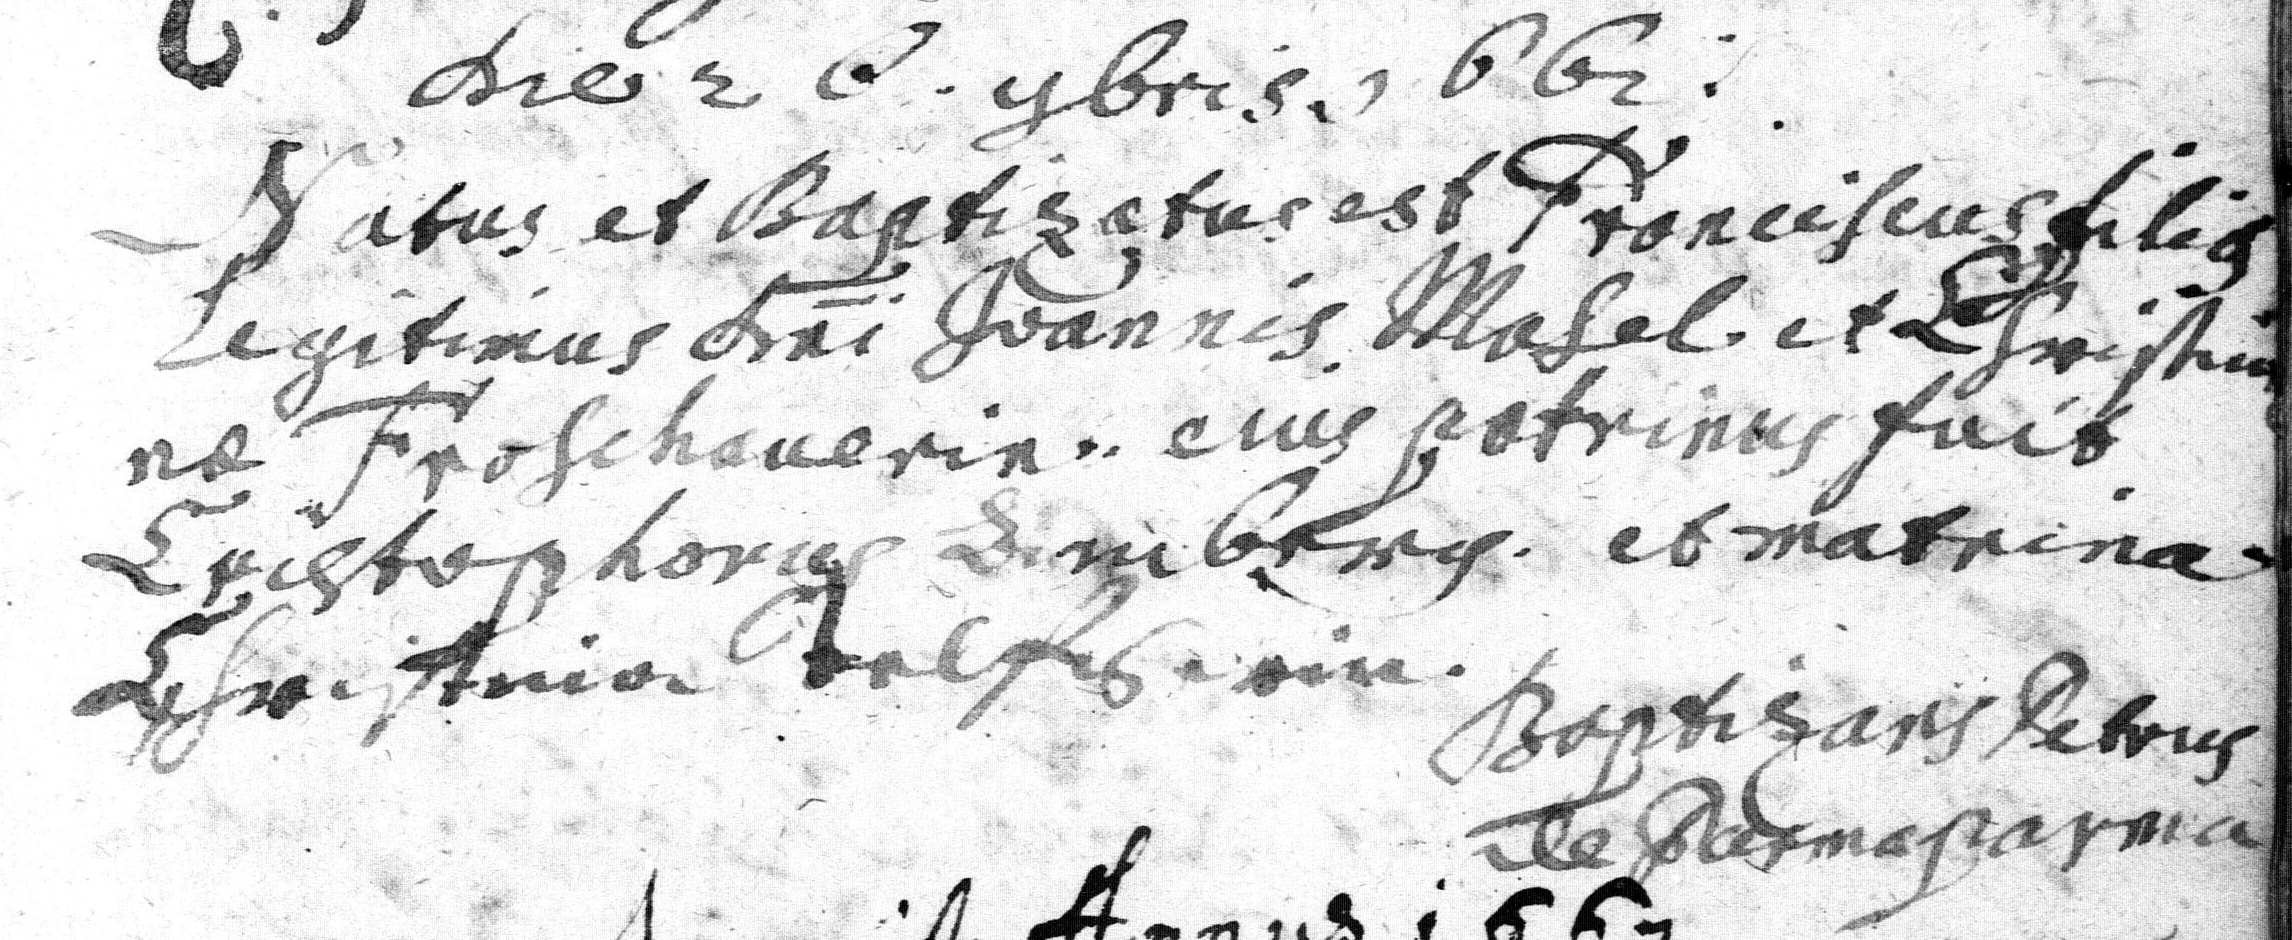 die 26. 9bris. 1662:
Natus et Baptizatus est Franciscus filig
Legitimus dnī Joannis Mosel. et Christi
næ Froschauerin.. cuius patrinus fuit
Cristophorus et matrina
Christina
Baptizans Petrus
De parma
Annus 1663